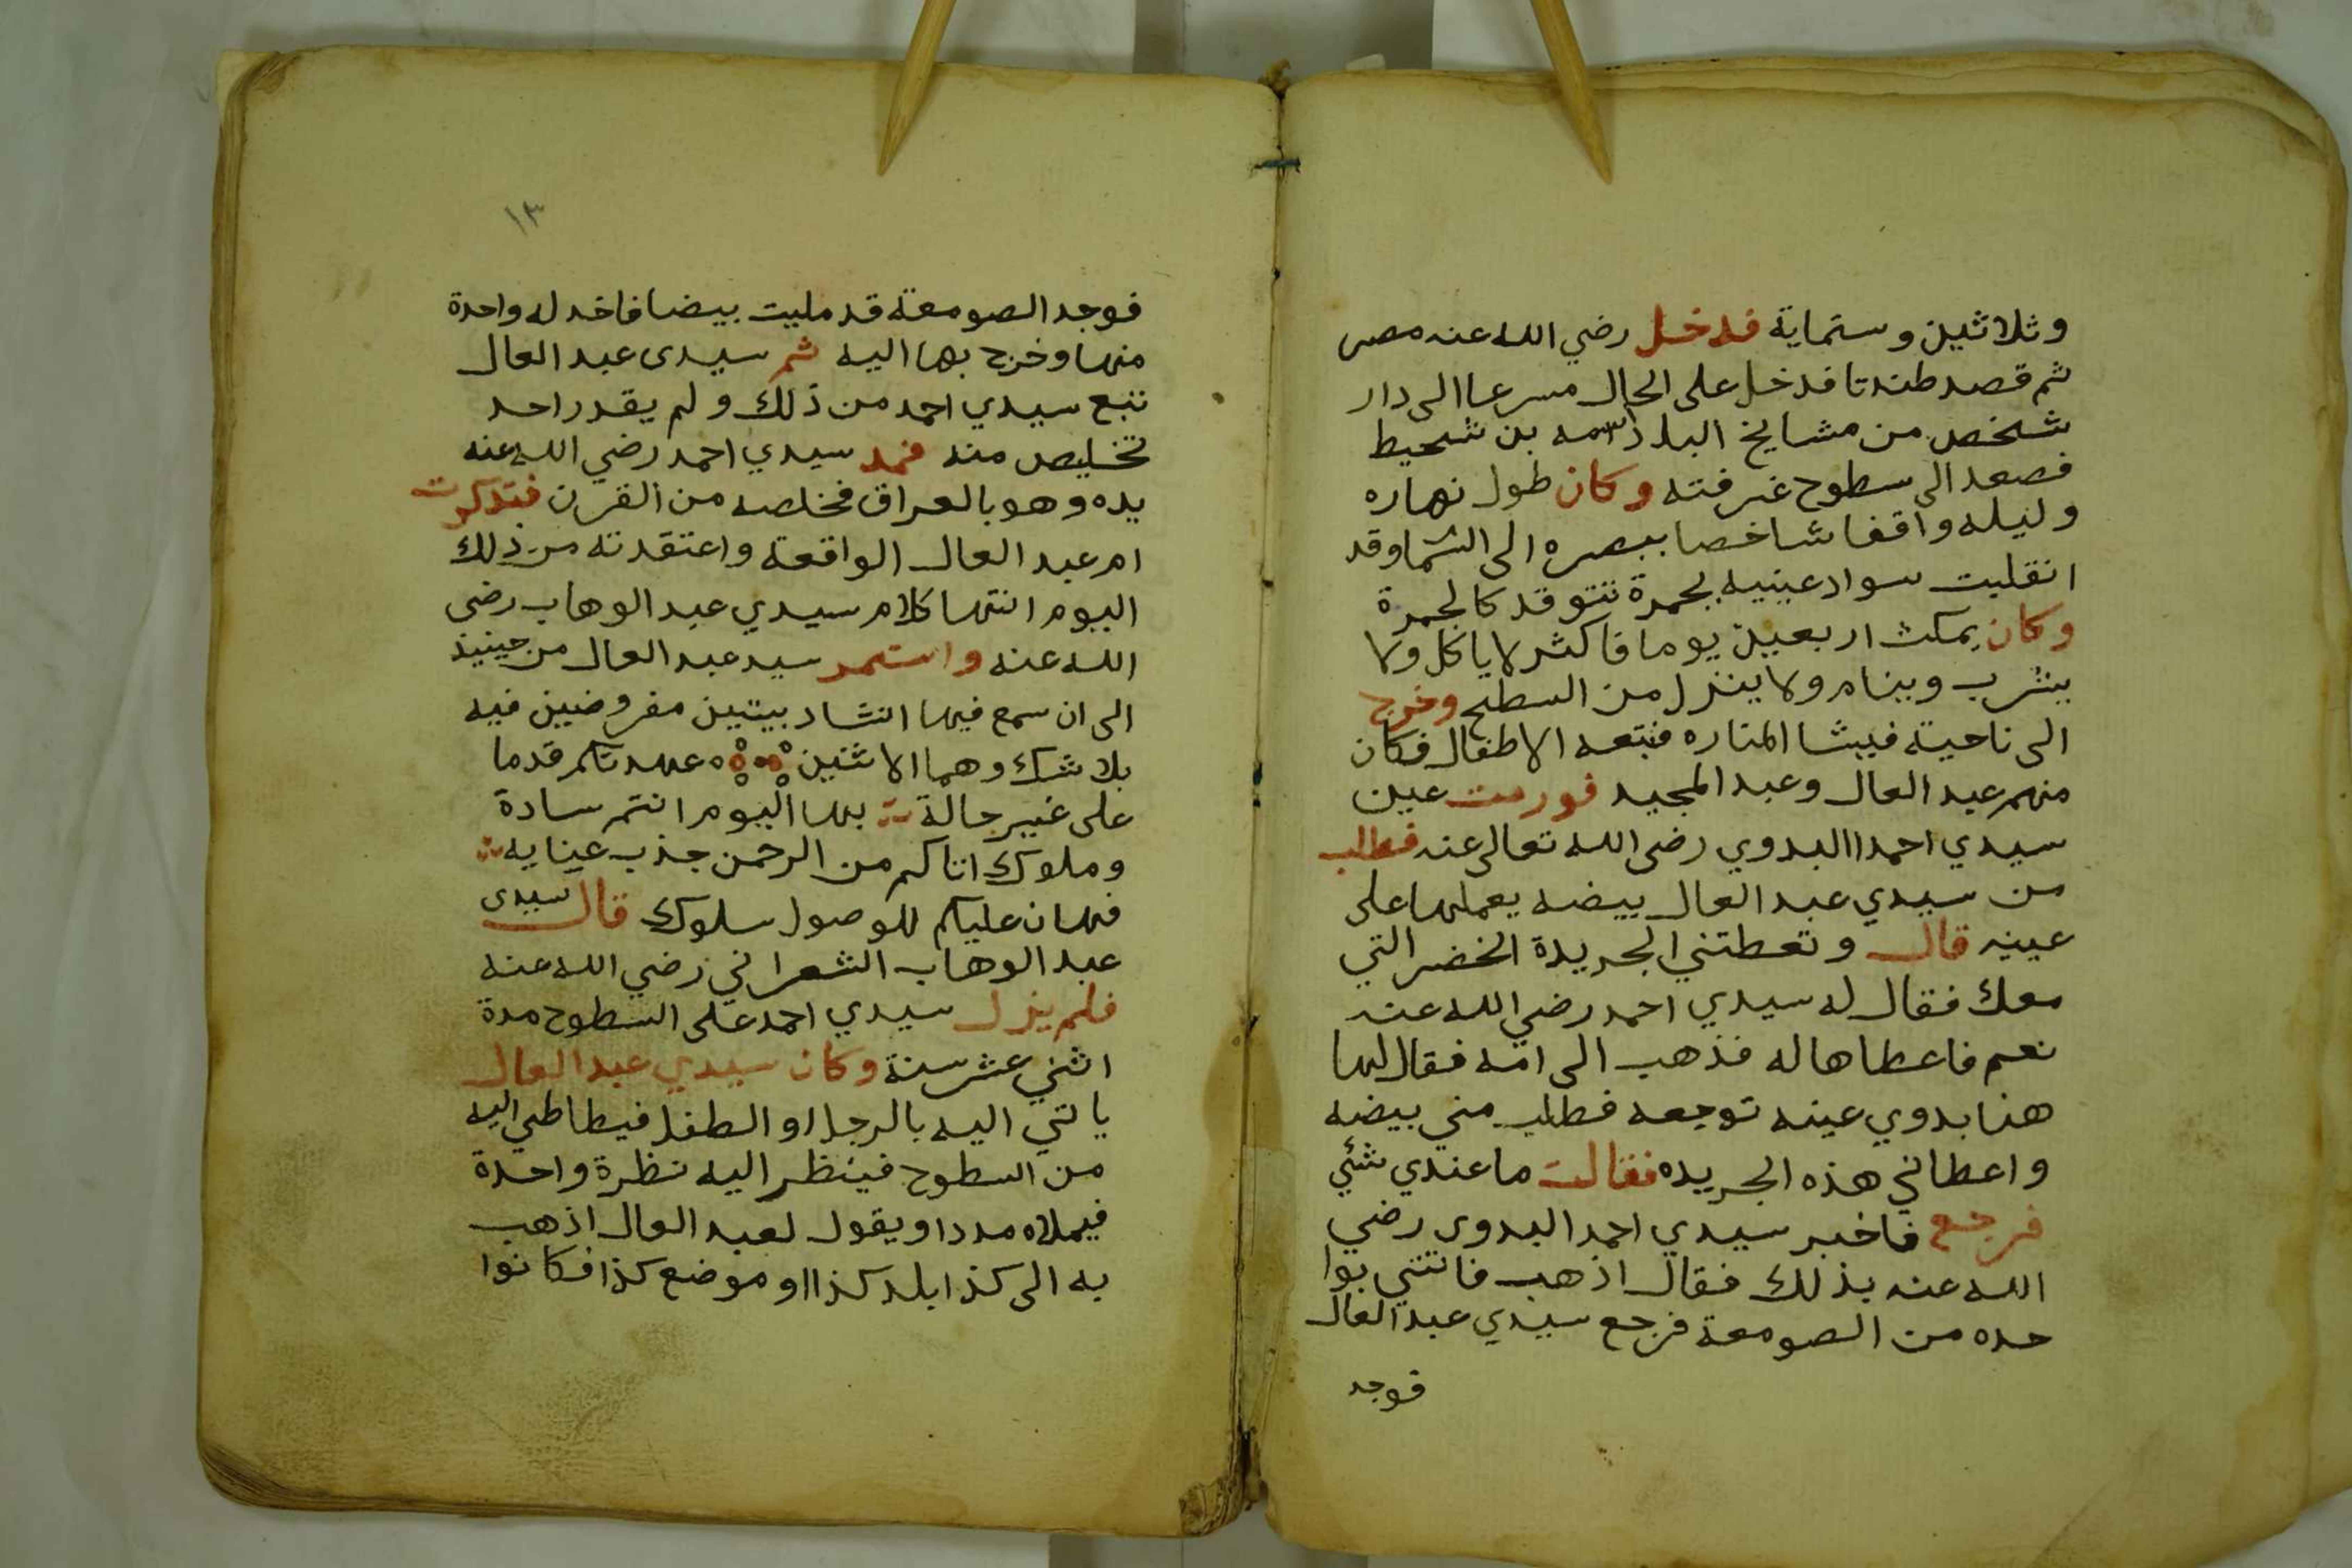 وثلاثين وستماية فدخل رضي الله عنه مصر
ثم قصد طندتا فدخل على الحال مسرعا الى دار
شخص من مشايخ البلد اسمه بن شحيط
فصعد الى سطوح غرفته وكان طول نهاره
وليله واقفا شاخصا ببصره الى السما وقد
انقلبت سواد عينيه بحمرة تتوقد كالجمرة
وكان يمكث اربعين يوما فاكثر لا ياكل ولا
يشرب وينام ولا ينزل من السطح وخرج
الى ناحية فيشا المناره فتبعه الاطفال فكان
منهم عبد العال وعبد المجيد فورمت عين
سيدي احمد االبدوي رضى الله تعالى عنه فطلب
من سيدي عبد العال بيضه يعملها على
عينه قال وتعطتني الجريدة الخضر التي
معك فقال له سيدي احمد رضي الله عنه
نعم فاعطاها له فذهب الى امه فقال لها
هنا بدوي عينه توجعه فطلب مني بيضه
واعطاني هذه الجريده فقالت ما عندي شئي
فرجع فاخبر سيدي احمد البدوى رضي
الله عنه بذلك فقال اذهب فاتني بوا
حده من الصومعة فرجع سيدي عبد العال
فوجد
١٣
فوجد الصومعة قد مليت بيضا فاخد له واحدة
منها وخرج بها اليه ثم سيدى عبد العال
تبع سيدي احمد من ذلك ولم يقدر احد
تخليص منه فمد سيدي احمد رضي الله عنه
يده وهو بالعراق فخلصه من القرن فتدكرت
ام عبد العال الواقعة واعتقدته من ذلك
اليوم انتها كلام سيدي عبد الوهاب رضى
الله عنه واستمر سيد عبد العال من حينيذ
الى ان سمع فيها انشاد بيتين مفروضين فيه
بلا شك وهما الاثنين عهدتكم قدما
على غير حالة بها اليوم انتم سادة
وملوك اتاكم من الرحمن جذب عنايه
فهان عليكم للوصول سلوك قال سيدى
عبد الوهاب الشعراني رضي الله عنه
فلم يزل سيدي احمد على السطوح مدة
اثني عشر سنة وكان سيدي عبد العال
ياتي اليه بالرجل او الطفل فيطاطي اليه
من السطوح فينظر اليه نظرة واحدة
فيملاه مددا ويقول لعبد العال اذهب
به الى كذا بلد كذا او موضع كذا فكانوا